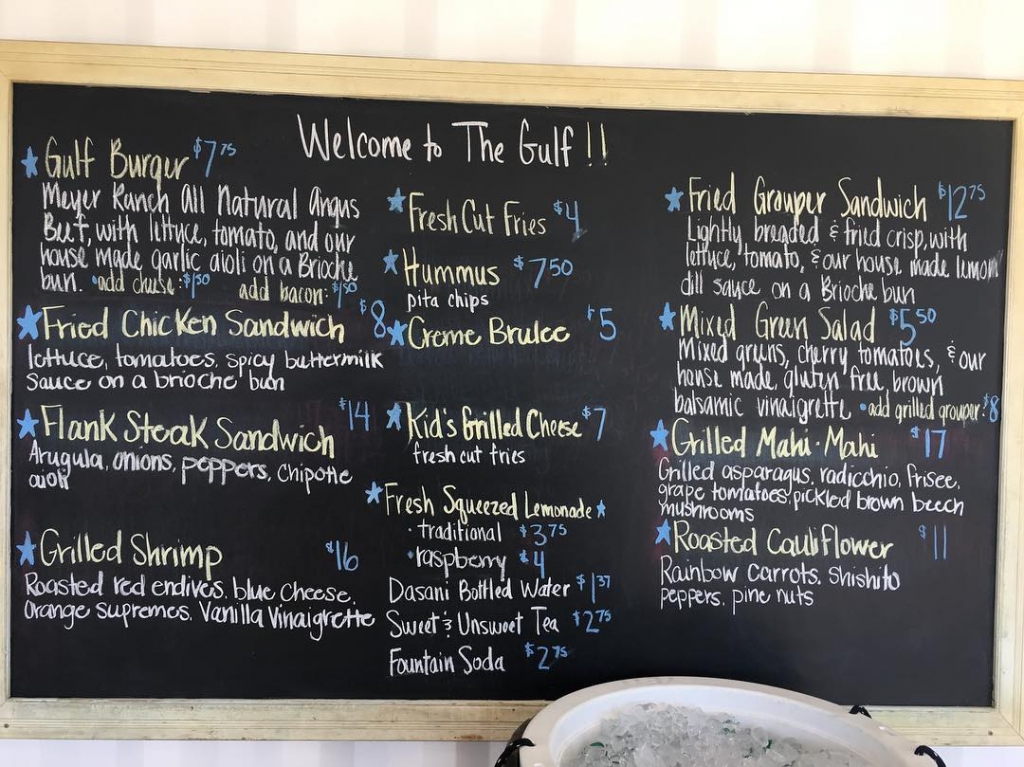 Welcome to The Gulf !!
Gulf Burger $7.75
Meyer Ranch All Natural Angus
Beef, with lettuce, tomato, and our
house made garlic aioli on a Brioche
bun. •add cheese: $1.50 add bacon: $1.50
Fried Chicken Sandwich $8
lettuce, tomatoes, spicy buttermilk
sauce on a brioche bun
Flank Steak Sandwich $14
Arugula, onions, peppers, chipotle
aioli
Grilled Shrimp $16
Roasted red endives, blue cheese,
orange supremes, Vanilla Vinaigrette
Fresh Cut Fries $4
Hummus $7.50
pita chips
Creme Brulee $5
Kid's Grilled Cheese $7
fresh cut fries
Fresh Squeezed Lemonade
• traditional $3.75
• raspberry $4
Dasani Bottled Water $1.37
Sweet & Unsweet Tea $2.75
Fountain Soda $2.75
Fried Grouper Sandwich $12.75
Lightly breaded & fried crisp, with
lettuce, tomato, & our house made lemon
dill sauce on a Brioche bun
Mixed Green Salad $5.50
Mixed greens, cherry tomatoes, & our
house made, gluten free, brown
balsamic vinaigrette •add grilled grouper: $8
Grilled Mahi-Mahi $17
Grilled asparagus, radicchio, frisee,
grape tomatoes, pickled brown beech
mushrooms
Roasted Cauliflower $11
Rainbow Carrots, shishito
peppers, pine nuts